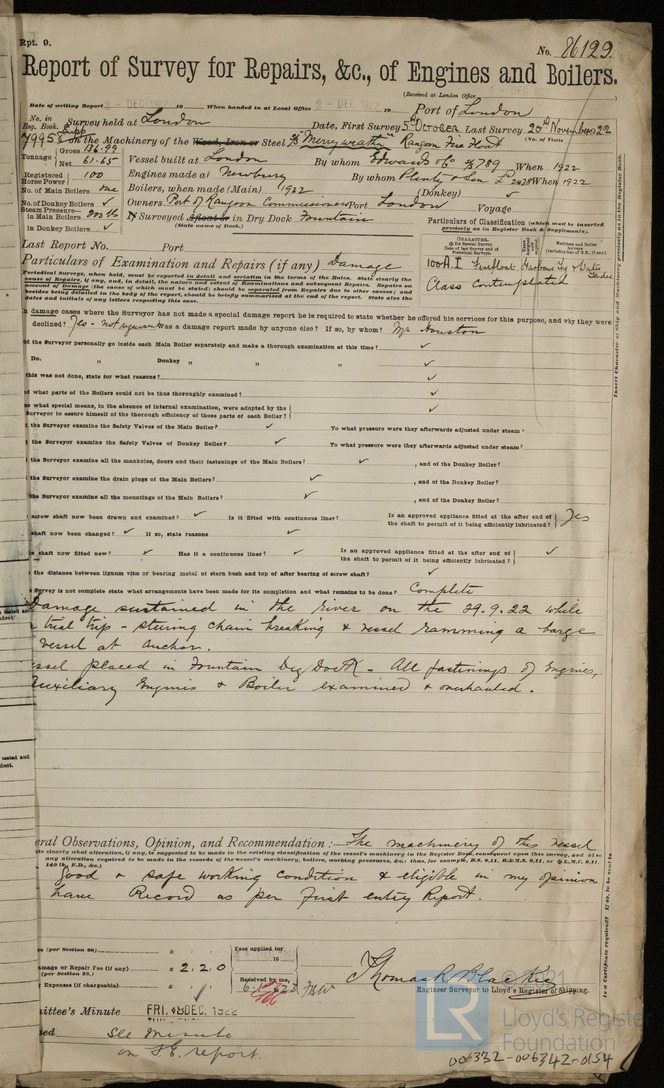 Rpt. 9.
No. 86129.
Report of Survey for Repairs, &c., of Engines and Boilers.
(Received at London Office
Date of writing Report 9 - DEC 1922 19 When handed in at Local Office 9 - DEC 1922 19 Port of London
No. in Reg. Book. Survey held at London Date, First Survey 5th October Last Survey 20th November 1922
(No. of Visits
on the Machinery of the Wood, Iron or Steel "Merryweather" Rangoon Fire Float
Tonnage Gross 136.99
Net 61.65 Vessel built at London By whom Edwards & Co When 1922
Registered Horse Power 100 Engines made at Newbury By whom Plenty & Son Ld When 1922
No. of Main Boilers one Boilers, when made (Main) 1922 (Donkey) ✓
No. of Donkey Boilers ✓ Owners Port of Rangoon Commissioners Port London Voyage
Steam Pressure— in Main Boilers 200 lb Surveyed Afloat or in Dry Dock Fountain
(State name of Dock.)
in Donkey Boilers ✓
Particulars of Classification (which must be inserted precisely as in Register Book & Supplements).
Last Report No. Port
Particulars of Examination and Repairs (if any) Damage
100 A.1 Firefloat
Class contemplated
Periodical Surveys, when held, must be reported in detail and seriatim in the terms of the Rules. State clearly the
cause of Repairs, if any, and, in detail, the nature and extent of Examinations and subsequent Repairs. Repairs on
account of Damage (the cause of which must be stated) should be separated from Repairs due to other causes; and
besides being detailed in the body of the report, should be briefly summarised at the end of the report. State also the
dates and initials of any letters respecting this case.
n damage cases where the Surveyor has not made a special damage report he is required to state whether he offered his services for this purpose, and why they were
declined? Yes - not required Was a damage report made by anyone else? If so, by whom? Mr Houston
id the Surveyor personally go inside each Main Boiler separately and make a thorough examination at this time? ✓
Do. " Donkey " " " ✓
this was not done, state for what reasons? ✓
d what parts of the Boilers could not be thus thoroughly examined? ✓
o what special means, in the absence of internal examination, were adopted by the
Surveyor to assure himself of the thorough efficiency of those parts of each Boiler? ✓
the Surveyor examine the Safety Valves of the Main Boiler? ✓ To what pressure were they afterwards adjusted under steam
the Surveyor examine the Safety Valves of Donkey Boiler? ✓ To what pressure were they afterwards adjusted under steam?
the Surveyor examine all the manholes, doors and their fastenings of the Main Boilers? ✓, and of the Donkey Boiler?
the Surveyor examine the drain plugs of the Main Boilers? ✓, and of the Donkey Boiler?
the Surveyor examine all the mountings of the Main Boilers? ✓, and of the Donkey Boiler?
screw shaft now been drawn and examined? ✓ Is it fitted with continuous liner? ✓ Is an approved appliance fitted at the after end of
the shaft to permit of it being efficiently lubricated? Yes
shaft now been changed? ✓ If so, state reasons ✓
shaft now fitted new? ✓ Has it a continuous liner? ✓ Is an approved appliance fitted at the after end of
the shaft to permit of it being efficiently lubricated? ✓
the distance between lignum vitæ or bearing metal of stern bush and top of after bearing of screw shaft? ✓
Survey is not complete state what arrangements have been made for its completion and what remains to be done? Complete
Damage sustained in the river on the 29.9.22 while
trial trip - steering chain breaking & vessel ramming a barge
vessel at anchor.
ssel placed in Fountain Dry Dock - All fastenings of Engines,
Auxiliary Engines & Boiler examined & overhauled.
eral Observations, Opinion, and Recommendation:— The machinery of this vessel
te clearly what alteration, if any, is suggested to be made in the existing classification of the vessel's machinery in the Register Book, consequent upon this survey, and also
any alteration required to be made in the records of the vessel's machinery, boilers, working pressures, &c.: thus, for example, B.S. 9,11, B.&M.S. 9,11, or L.M.C. 9,11,
140 lb., F.D., &c.)
good & safe working condition & eligible in my opinion
have Record as per first entry Report.
(per Section 28) £
Damage or Repair Fee (if any) £ 2.2.0
(per Section 28.)
Expenses (if chargeable) £
Fees applied for
19
Received by me,
Thomas R Blackie
Engineer Surveyor to Lloyd's Register of Shipping.
ittee's Minute FRI. 8 DEC. 1922
See minute
on F.E. report.
© 2021
LR
Lloyd's Register
Foundation
006332-006342-0154